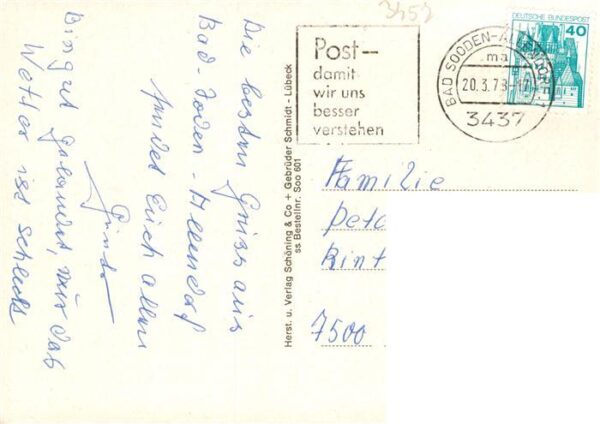 3459
Post-
damit
wir uns
besser
verstehen
BAD SOODEN-ALLENDORF 1
ma
20.3.79-17
3437
DEUTSCHE BUNDESPOST
40
Die besten Grüsse aus
Bad-Soden-Allendorf
sendet Euch allen
Günter
Bin gut gelandet, nur das
Wetter ist schlecht
Herst. u. Verlag Schöning & Co + Gebrüder Schmidt - Lübeck
ss Bestellnr. Soo 601
Familie
Pet
Rint
7500